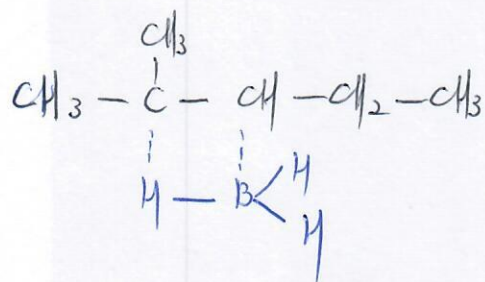 CH₃
CH₃ — C — CH — CH₂ — CH₃
H — B < H
H